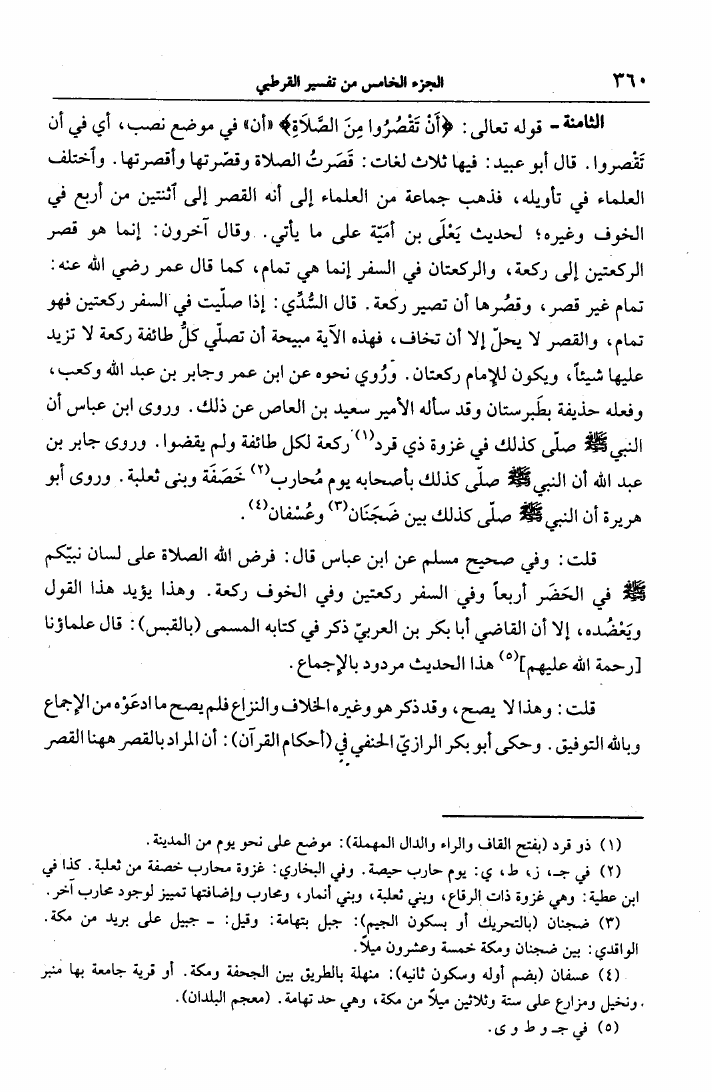 ٣٦٠
الجزء الخامس من تفسير القرطبي
الثامنة ـ قوله تعالى: ﴿أَنْ تَقْصُرُوا مِنَ الصَّلَاةِ﴾ «أن» في موضع نصب، أي في أن
تَقْصروا. قال أبو عبيد: فيها ثلاث لغات: قَصَرتُ الصلاة وقصّرتها وأقصرتها. وآختلف
العلماء في تأويله، فذهب جماعة من العلماء إلى أنه القصر إلى آثنتين من أربع في
الخوف وغيره؛ لحديث يَعْلَى بن أمَيّة على ما يأتي. وقال آخرون: إنما هو قصر
الركعتين إلى ركعة، والركعتان في السفر إنما هي تمام، كما قال عمر رضي الله عنه:
تمام غير قصر، وقصْرها أن تصير ركعة. قال السُّدِّي: إذا صلّيت في السفر ركعتين فهو
تمام، والقصر لا يحلّ إلا أن تخاف، فهذه الآية مبيحة أن تصلّي كلُّ طائفة ركعة لا تزيد
عليها شيئاً، ويكون للإمام ركعتان. ورُوي نحوه عن ابن عمر وجابر بن عبد الله وكعب،
وفعله حذيفة بطَبرستان وقد سأله الأمير سعيد بن العاص عن ذلك. وروى ابن عباس أن
النبي ﷺ صلّى كذلك في غزوة ذي قرد(١) ركعة لكل طائفة ولم يقضوا. وروى جابر بن
عبد الله أن النبي ﷺ صلّى كذلك بأصحابه يوم مُحارب(٢) خَصَفَة وبنى ثعلبة. وروى أبو
هريرة أن النبي ﷺ صلّى كذلك بين ضَجَنَان(٣) وعُسْفان(٤).
قلت: وفي صحيح مسلم عن ابن عباس قال: فرض الله الصلاة على لسان نبيّكم
ﷺ في الحَضَر أربعاً وفي السفر ركعتين وفي الخوف ركعة. وهذا يؤيد هذا القول
ويَعْضُده، إلا أن القاضي أبا بكر بن العربيّ ذكر في كتابه المسمى (بالقبس): قال علماؤنا
[رحمة الله عليهم](٥) هذا الحديث مردود بالإجماع.
قلت: وهذا لا يصح، وقد ذكر هو وغيره الخلاف والنزاع فلم يصح ما ادعَوْه من الإجماع
وبالله التوفيق. وحكى أبو بكر الرازيّ الحنفي في (أحكام القرآن): أن المراد بالقصر ههنا القصر
(١) ذو قرد (بفتح القاف والراء والدال المهملة): موضع على نحو يوم من المدينة.
(٢) في جـ، ز، ط، ي: يوم حارب حيصة. وفي البخاري: غزوة محارب خصفة من ثعلبة. كذا في
ابن عطية: وهي غزوة ذات الرقاع، وبني ثعلبة، وبني أنمار، ومحارب وإضافتها تمييز لوجود محارب آخر.
(٣) ضجنان (بالتحريك أو بسكون الجيم): جبل بتهامة: وقيل: ـ جبيل على بريد من مكة.
الواقدي: بين ضجنان ومكة خمسة وعشرون ميلاً.
(٤) عسفان (بضم أوله وسكون ثانيه): منهلة بالطريق بين الجحفة ومكة. أو قرية جامعة بها منبر
ونخيل ومزارع على ستة وثلاثين ميلاً من مكة، وهي حد تهامة. (معجم البلدان).
(٥) في جـ و ط و ى.